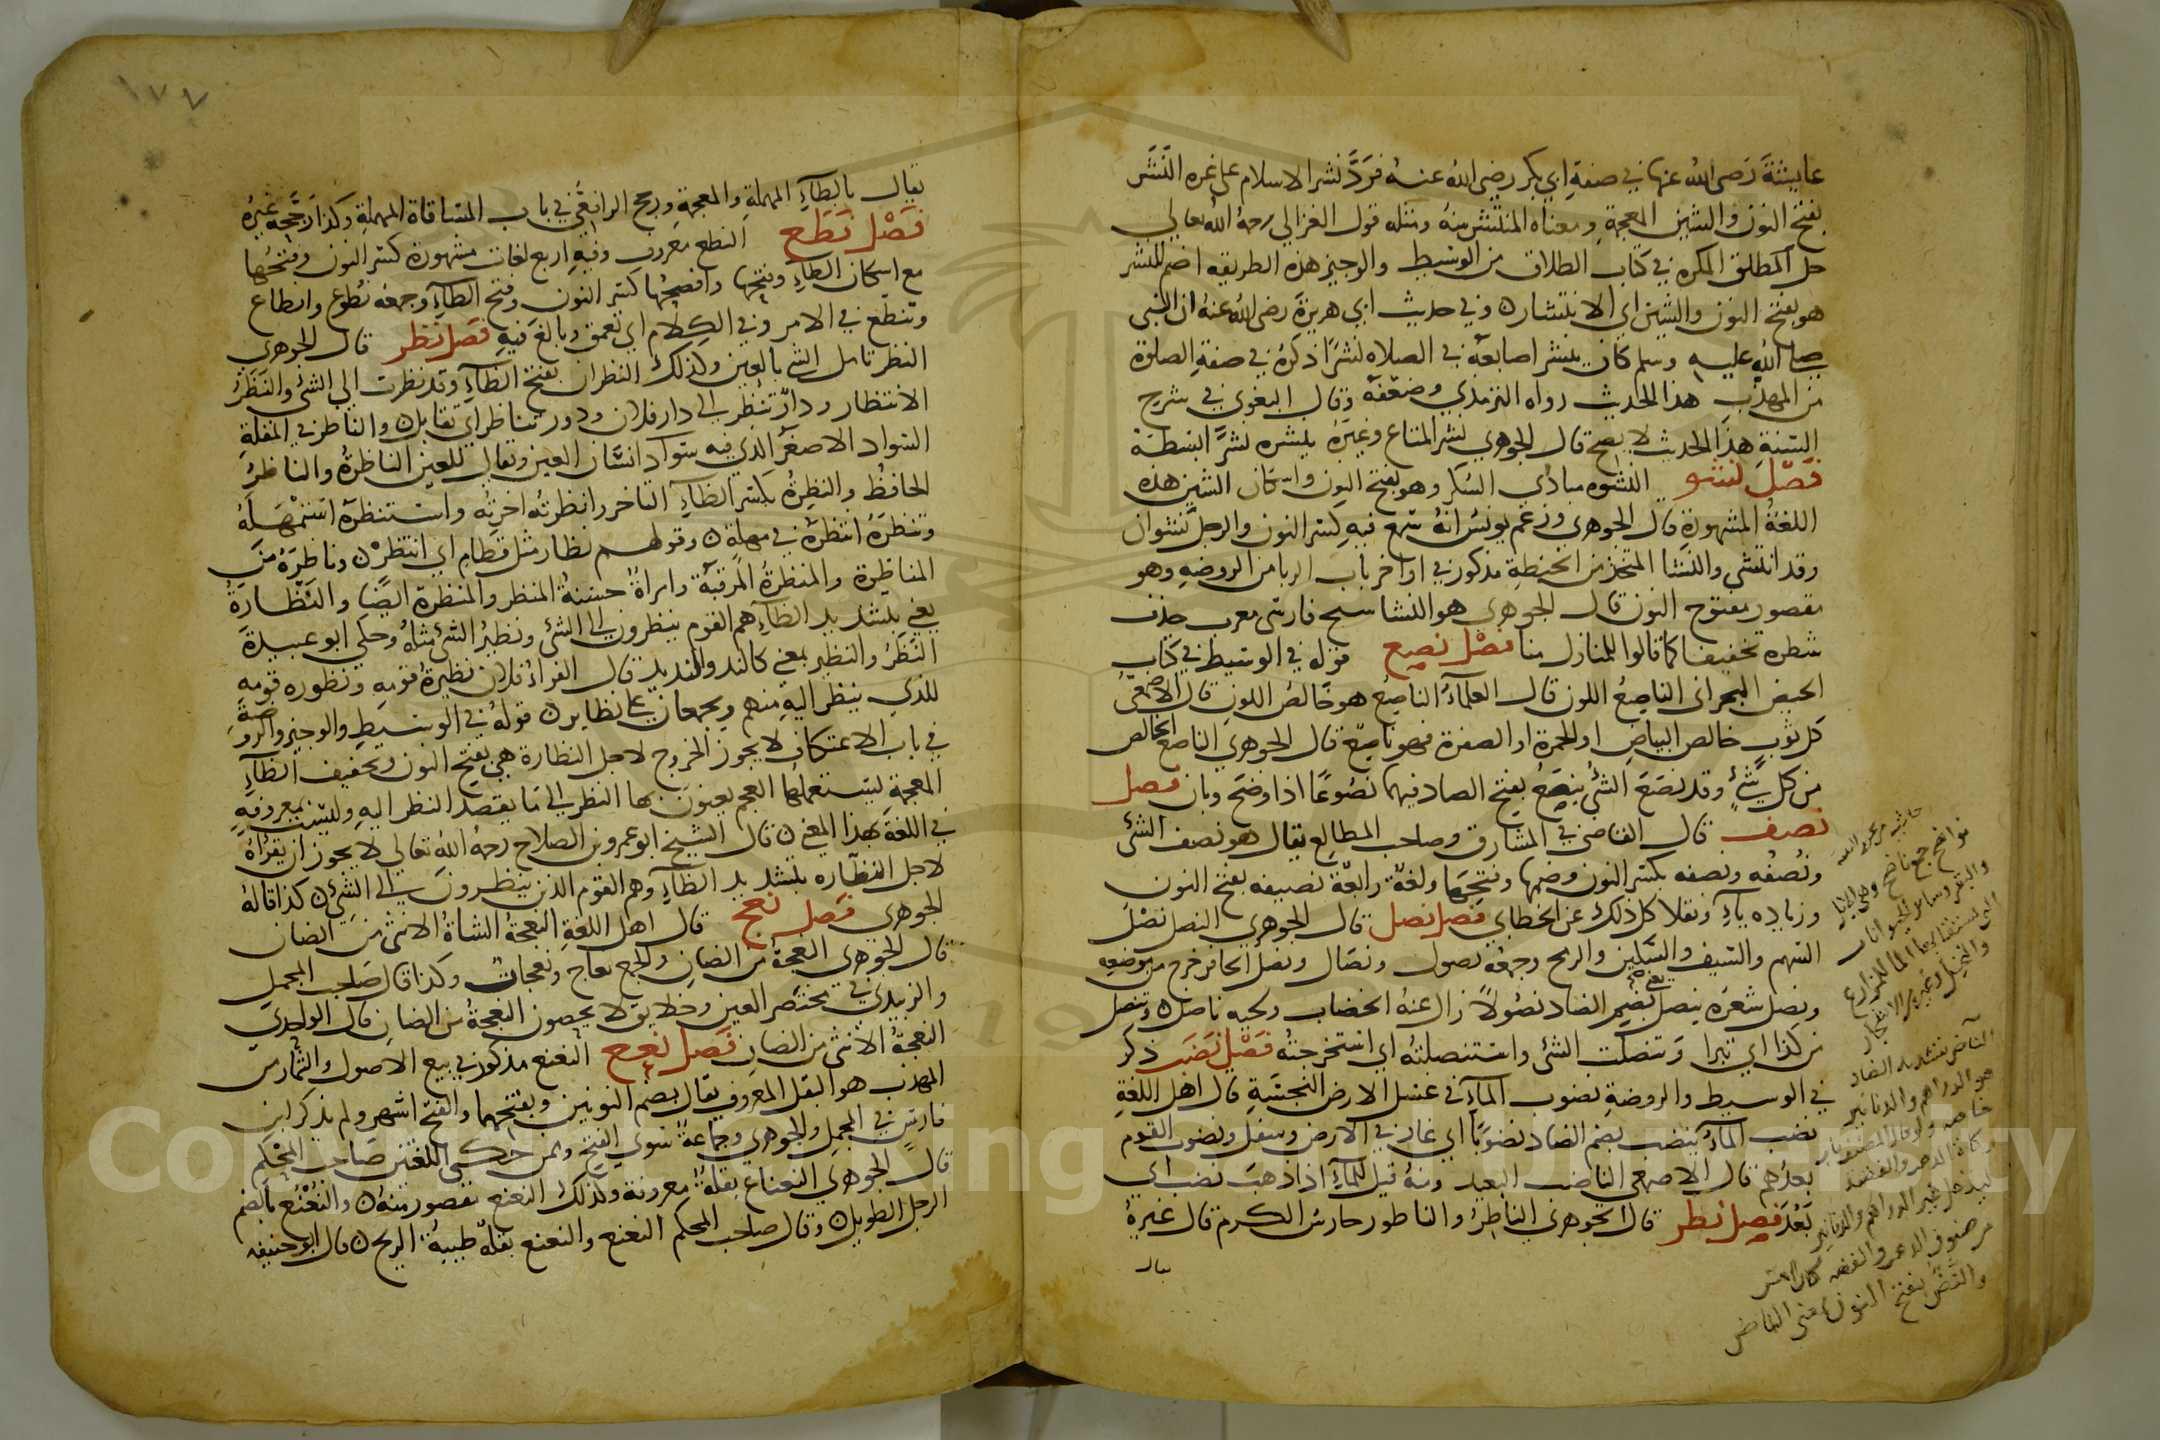 عايشة رضى الله عنها في صفة ابي بكر رضى الله عنه فرد نشر الاسلام على غره النشر
بفتح النون والشين المعجمة ومعناه المنتشر منه ومثله قول الغزالي رحمه الله تعالي
حل المطلق المكره في كتاب الطلاق من الوسيط والوجيز هذه الطريقه اضم للنشر
هو بفتح النون والشين اي الانتشار ه وفي حديث ابي هريرة رضى الله عنه ان النبى
صلى الله عليه وسلم كان ينشر اصابعه في الصلاه نشرا ذكره في صفة الصلوة
من المهذب هذا الحديث رواه الترمذي وضعفه وقال البغوي في شرح
السنة هذا الحديث لا يصح قال الجوهري نشر المتاع وغيره ينشره نشرا بسطه
فصل نشو النشوه مبادي السكر وهو بفتح النون واسكان الشين هذه
اللغة المشهورة قال الجوهري وزعم يونس انه سمع فيه كسر النون والرجل نشوان
وقد انتشى والنشا المتخذ من الحنطة مذكور في اواخر باب الربا من الروضه وهو
مقصور مفتوح النون قال الجوهري هو النشا سبح فارسى معرب حذف
شطره تخفيفا كما قالوا للمنازل منا فصل نصع قوله في الوسيط في كتاب
الحيض البحراني الناصع اللون قال العلماء الناصع هو خالص اللون قال الاصمعي
كل ثوب خالص البياض او الحمرة او الصفرة فهو ناصع قال الجوهري الناصع الخالص
من كل شئ وقد نصع الشئ ينصع بفتح الصاد فيهما نصوعا اذا وضح وبان فصل
نصف قال القاضي في المشارق وصاحب المطالع يقال هو نصف الشئ
ونصفه ونصفه بكسر النون وضمها وفتحها ولغة رابعة نصيفه بفتح النون
وزياده ياء ونقلا كل ذلك عن الخطابي فصل نصل قال الجوهري النصل نصل
السهم والسيف والسكين والرمح وجمعه نصول ونصال ونصل الحافر خرج من موضعه
ونصل شعره ينصل يعني بضم الصاد نصولا زال عنه الخضاب ولحيه ناصل ه وتنصل
من كذا اي تبرا وتنصلت الشئ واستنصلته اي استخرجته فصل نضب ذكر
في الوسيط والروضة نضوب الماء في غسل الارض النجسة قال اهل اللغة
نضب الماء ينضب بضم الضاد نضوبا اي غار في الارض وسفل ونضوب القوم
بعدهم قال الاصمعي الناضب البعيد ومنه قيل للماء اذا ذهب نضب اي
بعد فصل نطر قال الجوهري الناطر والناطور حارس الكرم قال غيره
يقال
نواضح جمع ناضح وهي الابل
والبقر وسائر الحيوانات
التى يستقا بها الما للمزارع
والنخيل وغيره من الاشجار
الناض بتشديد الضاد
هو الدراهم والدنانير
خاصة
والنض بفتح النون بمعنى الناض
١٧٧
يقال بالطاء المهملة والمعجمة ورجح الرافعي في باب المساقاة المهملة وكذا رجحه غيره
فصل نطع النطع معروف وفيه اربع لغات مشهورة كسر النون وفتحها
مع اسكان الطاء وفتحها وافصحها كسر النون وفتح الطاء وجمعه نطوع وانطاع
وتنطع في الامر وفي الكلام اي تعمق وبالغ فيه فصل نظر قال الجوهري
النظر تامل الشئ بالعين وكذلك النظران بفتح الظاء وقد نظرت الي الشئ والنظر
الانتظار ودار تنظر الى دار فلان ودور تتناظر اي تقابل ه والناظر في المقلة
السواد الاصغر الذي فيه سواد انسان العين ويقال للعين الناظرة والناظر
الحافظ والنظرة بكسر الظاء التاخر وانظرته اخرته واستنظره استمهله
وتنظره انتظره في مهلة ه وقولهم نظار مثل قطام اي انتظر ه وناظره من
المناظرة والمنظرة المرقبة وامراة حسنة المنظر والمنظرة ايضا والنظارة
يعني بتشديد الظاء هم القوم ينظرون الى الشئ ونظير الشئ مثله وحكي ابو عبيدة
النظر والنظير بمعني كالند والنديد قال الفراء فلان نظيرة قومه ونظوره قومه
للذي ينظر اليه منهم ويجمعان على نظاير ه قوله في الوسيط والوجيز والروضة
في باب الاعتكاف لا يجوز الخروج لاجل النظارة هي بفتح النون وتخفيف الظاء
المعجمة ليستعملها العجم يعنون بها النظر الى ما يقصد النظر اليه وليست بمعروفه
في اللغة بهذا المعني ه قال الشيخ ابو عمرو بن الصلاح رحمه الله تعالي لا يجوز ان يقراه
لاجل النظاره بتشديد الظاء وهم القوم الذين ينظرون الى الشئ ه كذا قاله
الجوهري فصل نعج قال اهل اللغة النعجة الشاة الانثى من الضان
قال الجوهري النعجة من الضان والجمع نعاج ونعجات وكذا قال صاحب المجمل
والزبيدي في مختصر العين وخلايق لا يحصون النعجة من الضان قال الواحدي
النعجة الانثى من الضان فصل نعع النعنع مذكور في بيع الاصول والثمار من
المهذب هو البقل المعروف يقال بضم النونين وبفتحهما والفتح اشهر ولم يذكر ابن
فارس في المجمل والجوهري وجماعة سوي الفتح وممن حكى اللغتين صاحب المحكم
قال الجوهري النعناع بقلة معروفة وكذلك النعنع مقصور منه ه والنعنع بالضم
الرجل الطويل ه وقال صاحب المحكم النعنع والنعنع بقلة طيبة الريح ه قال ابو حنيفه
Copyright © King Saud University